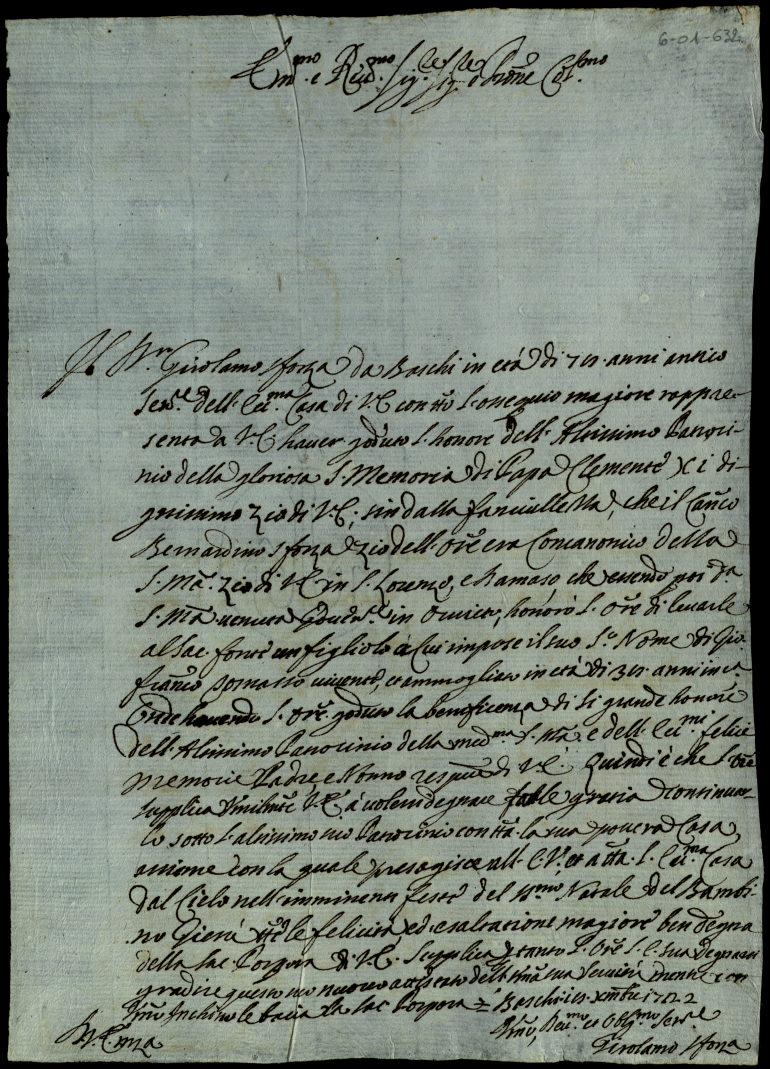 6-01-632
Em.mo e Rev.mo Sig.re Sig.re e Prone Col.mo
Girolamo Sforza da Baschi in età di anni antico
Ser.e dell' Ecc.ma Casa di V.E. con tto l'ossequio magiore rappre-
senta a V.E. haver goduto l'honore dell'Altissimo Patroci-
nio della gloriosa S. Memoria di Papa Clemente XI di-
gnissimo Zio di V.E., sin dalla fanciullezza, che il Can.co
Bernardino Sforza Zio dell'Ore era Concanonico della
S. Mà. Zio di V.E. in S. Lorenzo, e Damaso che essendo poi da
S. Mà venuta in Orvieto, honorò l'Ore di levarle
al Sac. fonte un figliolo à cui impose il suo S.o Nome di Gio.
Franc.o vivente, et ammogliato in età di anni
Onde havendo l'Ore goduto la beneficenza di si grande honore
dell'Altissimo Patrocinio della med.ma S. Mà e dell' Ecc.mi felice
memorie Padre e Nonno di V.E. Quindi è che l'Ore
supplica V.E. à volersi degnare farle gratia continuar-
lo sotto l'altissimo suo Patrocinio con tta la sua povera Casa
assieme con la quale presagisce all' E.V. et a tta l' Ecc.ma Casa
dal Cielo nell'imminenti feste del SS.mo Natale del Bambi-
no Giesù tte le felicità ed esaltatione magiore ben degna
della Sac. Porpora di V.E. Supplica l'Ore l' E. sua degnarsi
gradire questo suo nuovo attestato dell' sua servitù mentre con
inchino le bacia la Sac. Porpora = Baschi 1722
V. Em.za
Rev.mo et Obl.mo Ser.e
Girolamo Sforza